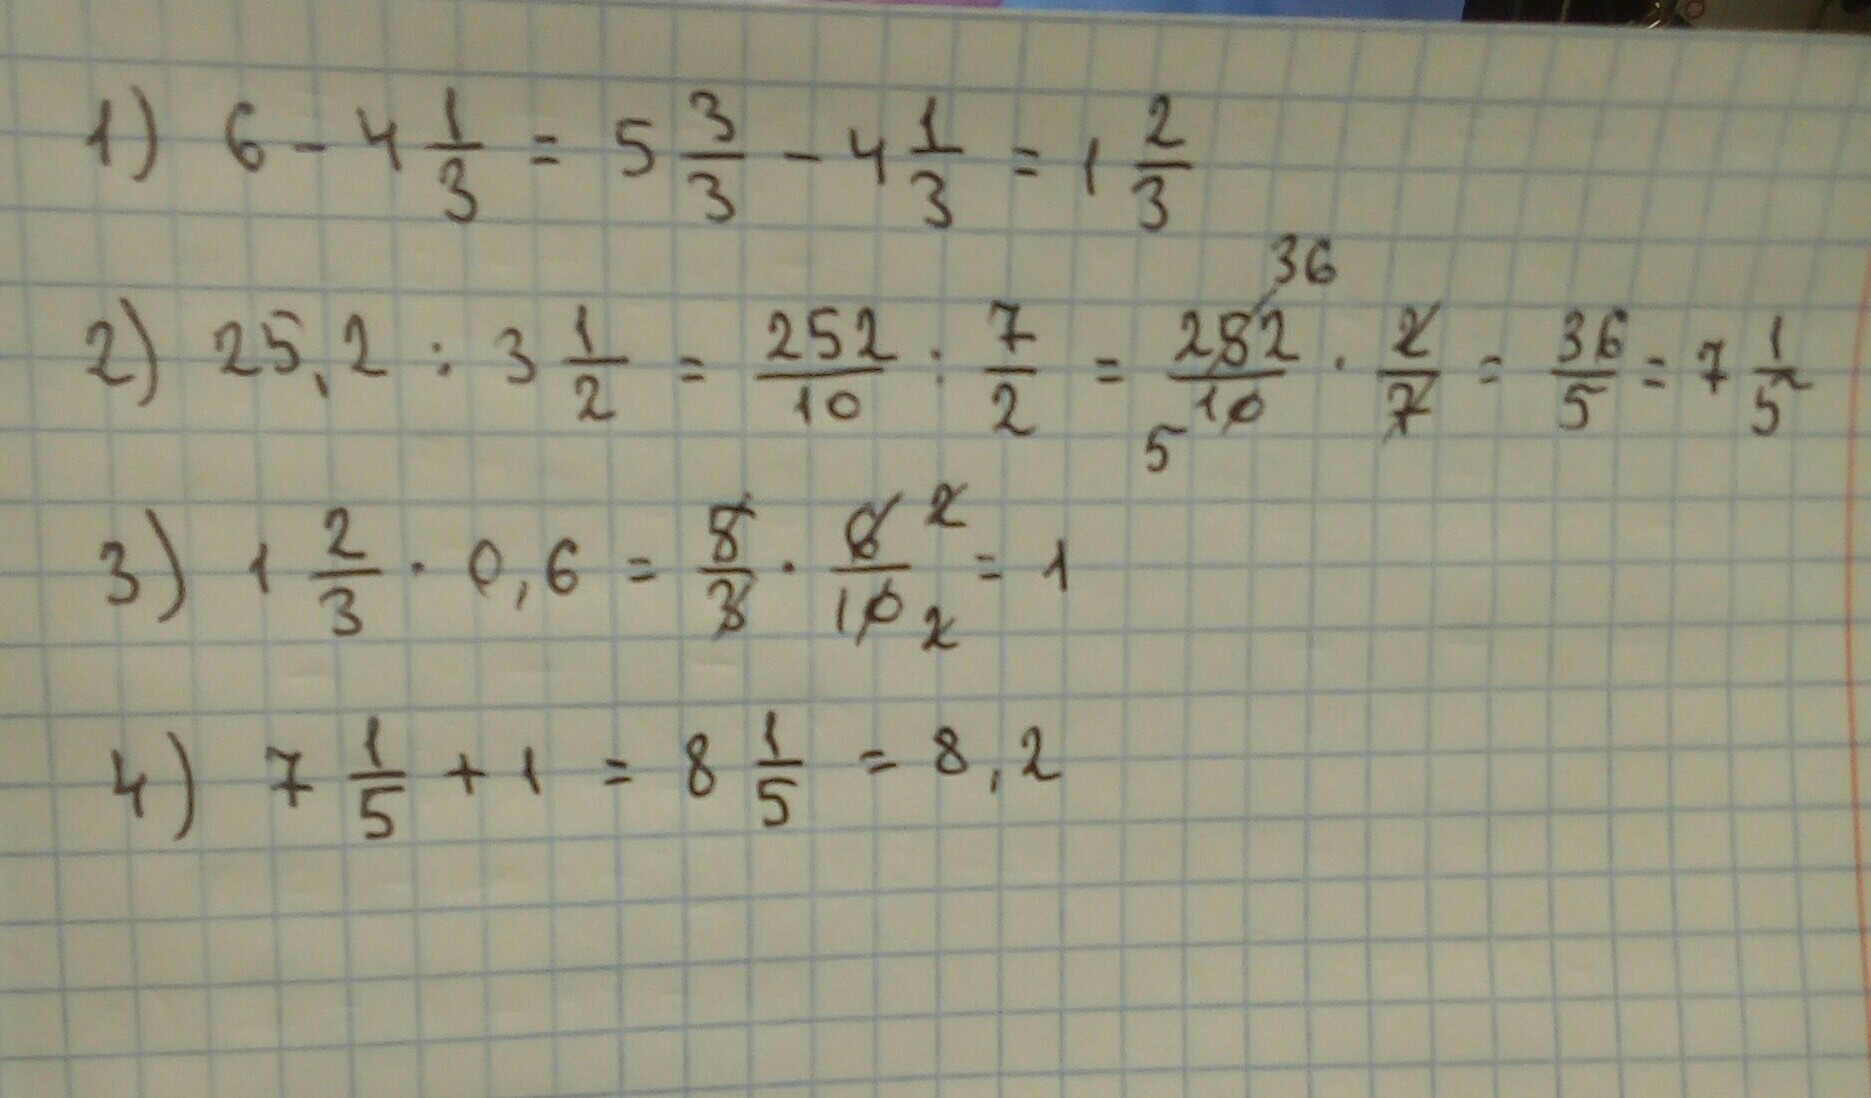 1) 6 - 4 1/3 = 5 3/3 - 4 1/3 = 1 2/3
2) 25,2 : 3 1/2 = 252/10 : 7/2 = 252/10 · 2/7 = 36/5 = 7 1/5
36
5
3) 1 2/3 · 0,6 = 5/3 · 6/10 = 1
2
2
4) 7 1/5 + 1 = 8 1/5 = 8,2